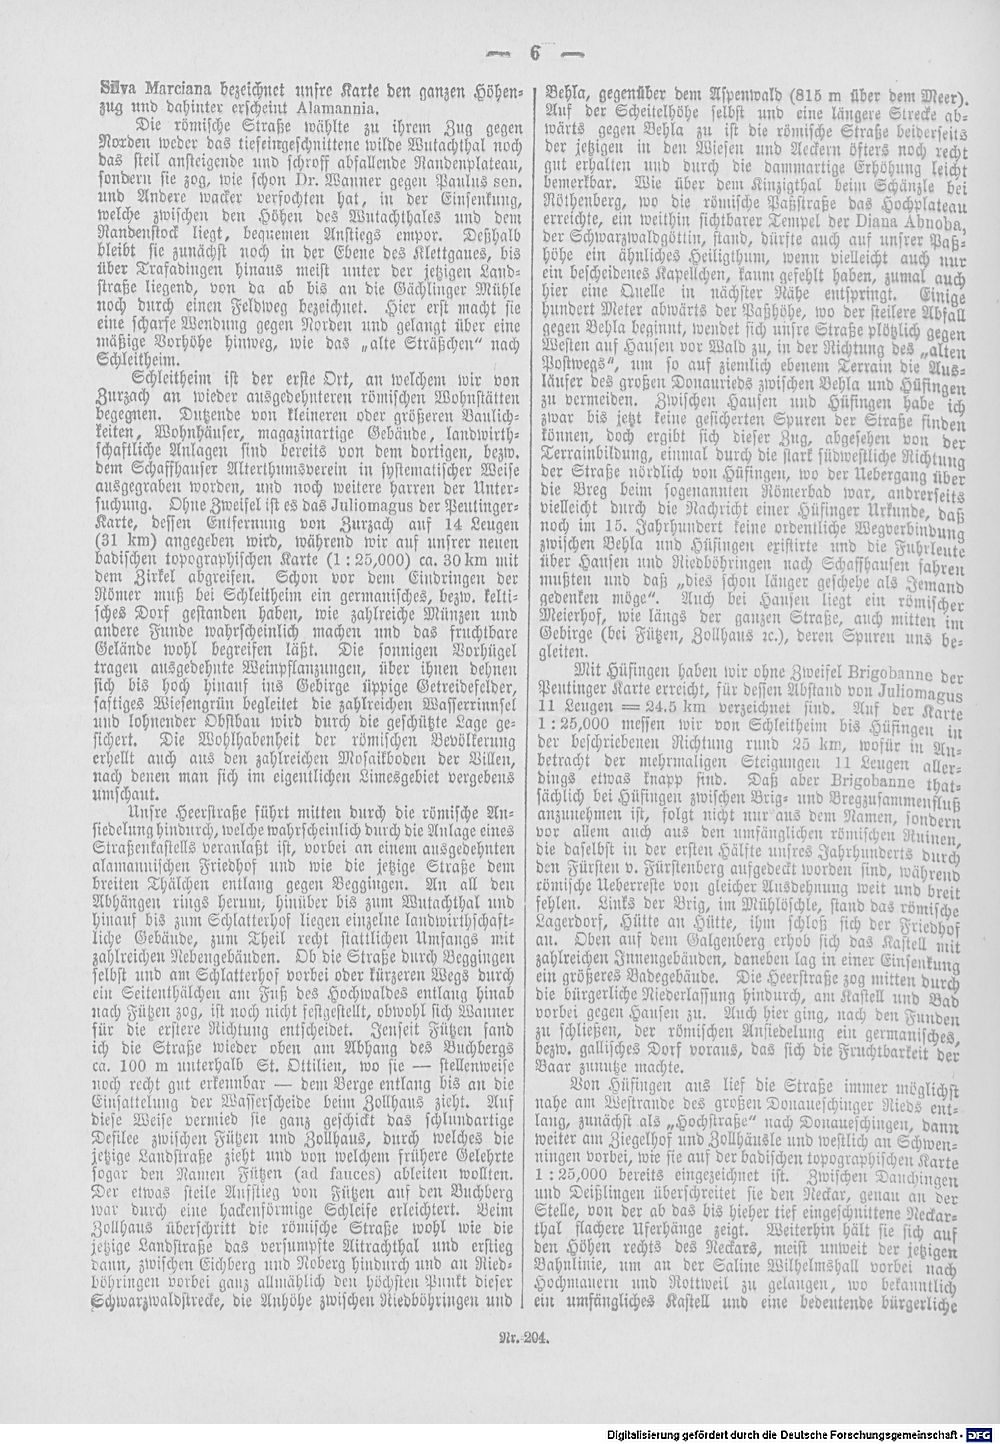 — 6 —
Silva Marciana bezeichnet unsre Karte den ganzen Höhen-
zug und dahinter erscheint Alamannia.
Die römische Straße wählte zu ihrem Zug gegen
Norden weder das tiefeingeschnittene wilde Wutachthal noch
das steil ansteigende und schroff abfallende Randenplateau,
sondern sie zog, wie schon Dr. Wanner gegen Paulus sen.
und Andere wacker verfochten hat, in der Einsenkung,
welche zwischen den Höhen des Wutachthales und dem
Randenstock liegt, bequemen Anstiegs empor. Deßhalb
bleibt sie zunächst noch in der Ebene des Klettgaues, bis
über Trafadingen hinaus meist unter der jetzigen Land-
straße liegend, von da ab bis an die Gächlinger Mühle
noch durch einen Feldweg bezeichnet. Hier erst macht sie
eine scharfe Wendung gegen Norden und gelangt über eine
mäßige Vorhöhe hinweg, wie das „alte Sträßchen“ nach
Schleitheim.
Schleitheim ist der erste Ort, an welchem wir von
Zurzach an wieder ausgedehnteren römischen Wohnstätten
begegnen. Dutzende von kleineren oder größeren Baulich-
keiten, Wohnhäuser, magazinartige Gebäude, landwirth-
schaftliche Anlagen sind bereits von dem dortigen, bezw.
dem Schaffhauser Alterthumsverein in systematischer Weise
ausgegraben worden, und noch weitere harren der Unter-
suchung. Ohne Zweifel ist es das Juliomagus der Peutinger-
Karte, dessen Entfernung von Zurzach auf 14 Leugen
(31 km) angegeben wird, während wir auf unsrer neuen
badischen topographischen Karte (1 : 25,000) ca. 30 km mit
dem Zirkel abgreifen. Schon vor dem Eindringen der
Römer muß bei Schleitheim ein germanisches, bezw. kelti-
sches Dorf gestanden haben, wie zahlreiche Münzen und
andere Funde wahrscheinlich machen und das fruchtbare
Gelände wohl begreifen läßt. Die sonnigen Vorhügel
tragen ausgedehnte Weinpflanzungen, über ihnen dehnen
sich bis hoch hinauf ins Gebirge üppige Getreidefelder,
saftiges Wiesengrün begleitet die zahlreichen Wasserrinnsel
und lohnender Obstbau wird durch die geschützte Lage ge-
sichert. Die Wohlhabenheit der römischen Bevölkerung
erhellt auch aus den zahlreichen Mosaikboden der Villen,
nach denen man sich im eigentlichen Limesgebiet vergebens
umschaut.
Unsre Heerstraße führt mitten durch die römische An-
siedelung hindurch, welche wahrscheinlich durch die Anlage eines
Straßenkastells veranlaßt ist, vorbei an einem ausgedehnten
alamannischen Friedhof und wie die jetzige Straße dem
breiten Thälchen entlang gegen Beggingen. An all den
Abhängen rings herum, hinüber bis zum Wutachthal und
hinauf bis zum Schlatterhof liegen einzelne landwirthschaft-
liche Gebäude, zum Theil recht stattlichen Umfangs mit
zahlreichen Nebengebäuden. Ob die Straße durch Beggingen
selbst und am Schlatterhof vorbei oder kürzeren Wegs durch
ein Seitenthälchen am Fuß des Hochwaldes entlang hinab
nach Fützen zog, ist noch nicht festgestellt, obwohl sich Wanner
für die erstere Richtung entscheidet. Jenseit Fützen fand
ich die Straße wieder oben am Abhang des Buchbergs
ca. 100 m unterhalb St. Ottilien, wo sie — stellenweise
noch recht gut erkennbar — dem Berge entlang bis an die
Einsattelung der Wasserscheide beim Zollhaus zieht. Auf
diese Weise vermied sie ganz geschickt das schlundartige
Defilee zwischen Fützen und Zollhaus, durch welches die
jetzige Landstraße zieht und von welchem frühere Gelehrte
sogar den Namen Fützen (ad fauces) ableiten wollten.
Der etwas steile Aufstieg von Fützen auf den Buchberg
war durch eine hackenförmige Schleife erleichtert. Beim
Zollhaus überschritt die römische Straße wohl wie die
jetzige Landstraße das versumpfte Aitrachthal und erstieg
dann, zwischen Eichberg und Roberg hindurch und an Ried-
böhringen vorbei ganz allmählich den höchsten Punkt dieser
Schwarzwaldstrecke, die Anhöhe zwischen Riedböhringen und
Behla, gegenüber dem Aspenwald (815 m über dem Meer).
Auf der Scheitelhöhe selbst und eine längere Strecke ab-
wärts gegen Behla zu ist die römische Straße beiderseits
der jetzigen in den Wiesen und Aeckern öfters noch recht
gut erhalten und durch die dammartige Erhöhung leicht
bemerkbar. Wie über dem Kinzigthal beim Schänzle bei
Röthenberg, wo die römische Paßstraße das Hochplateau
erreichte, ein weithin sichtbarer Tempel der Diana Abnoba,
der Schwarzwaldgöttin, stand, dürfte auch auf unsrer Paß-
höhe ein ähnliches Heiligthum, wenn vielleicht auch nur
ein bescheidenes Kapellchen, kaum gefehlt haben, zumal auch
hier eine Quelle in nächster Nähe entspringt. Einige
hundert Meter abwärts der Paßhöhe, wo der steilere Abfall
gegen Behla beginnt, wendet sich unsre Straße plötzlich gegen
Westen auf Hausen vor Wald zu, in der Richtung des „alten
Postwegs“, um so auf ziemlich ebenem Terrain die Aus-
läufer des großen Donaurieds zwischen Behla und Hüfingen
zu vermeiden. Zwischen Hausen und Hüfingen habe ich
zwar bis jetzt keine gesicherten Spuren der Straße finden
können, doch ergibt sich dieser Zug, abgesehen von der
Terrainbildung, einmal durch die stark südwestliche Richtung
der Straße nördlich von Hüfingen, wo der Uebergang über
die Breg beim sogenannten Römerbad war, andrerseits
vielleicht durch die Nachricht einer Hüfinger Urkunde, daß
noch im 15. Jahrhundert keine ordentliche Wegverbindung
zwischen Behla und Hüfingen existirte und die Fuhrleute
über Hausen und Riedböhringen nach Schaffhausen fahren
mußten und daß „dies schon länger geschehe als Jemand
gedenken möge“. Auch bei Hausen liegt ein römischer
Meierhof, wie längs der ganzen Straße, auch mitten im
Gebirge (bei Fützen, Zollhaus ꝛc.), deren Spuren uns be-
gleiten.
Mit Hüfingen haben wir ohne Zweifel Brigobanne der
Peutinger Karte erreicht, für dessen Abstand von Juliomagus
11 Leugen = 24.5 km verzeichnet sind. Auf der Karte
1 : 25,000 messen wir von Schleitheim bis Hüfingen in
der beschriebenen Richtung rund 25 km, wofür in An-
betracht der mehrmaligen Steigungen 11 Leugen aller-
dings etwas knapp sind. Daß aber Brigobanne that-
sächlich bei Hüfingen zwischen Brig- und Bregzusammenfluß
anzunehmen ist, folgt nicht nur aus dem Namen, sondern
vor allem auch aus den umfänglichen römischen Ruinen,
die daselbst in der ersten Hälfte unsres Jahrhunderts durch
den Fürsten v. Fürstenberg aufgedeckt worden sind, während
römische Ueberreste von gleicher Ausdehnung weit und breit
fehlen. Links der Brig, im Mühlöschle, stand das römische
Lagerdorf, Hütte an Hütte, ihm schloß sich der Friedhof
an. Oben auf dem Galgenberg erhob sich das Kastell mit
zahlreichen Innengebäuden, daneben lag in einer Einsenkung
ein größeres Badegebäude. Die Heerstraße zog mitten durch
die bürgerliche Niederlassung hindurch, am Kastell und Bad
vorbei gegen Hausen zu. Auch hier ging, nach den Funden
zu schließen, der römischen Ansiedelung ein germanisches,
bezw. gallisches Dorf voraus, das sich die Fruchtbarkeit der
Baar zunutze machte.
Von Hüfingen aus lief die Straße immer möglichst
nahe am Westrande des großen Donaueschinger Rieds ent-
lang, zunächst als „Hochstraße“ nach Donaueschingen, dann
weiter am Ziegelhof und Zollhäusle und westlich an Schwen-
ningen vorbei, wie sie auf der badischen topographischen Karte
1 : 25,000 bereits eingezeichnet ist. Zwischen Dauchingen
und Deißlingen überschreitet sie den Neckar, genau an der
Stelle, von der ab das bis hieher tief eingeschnittene Neckar-
thal flachere Uferhänge zeigt. Weiterhin hält sie sich auf
den Höhen rechts des Neckars, meist unweit der jetzigen
Bahnlinie, um an der Saline Wilhelmshall vorbei nach
Hochmauern und Rottweil zu gelangen, wo bekanntlich
ein umfängliches Kastell und eine bedeutende bürgerliche
Nr. 204.
Digitalisierung gefördert durch die Deutsche Forschungsgemeinschaft - DFG